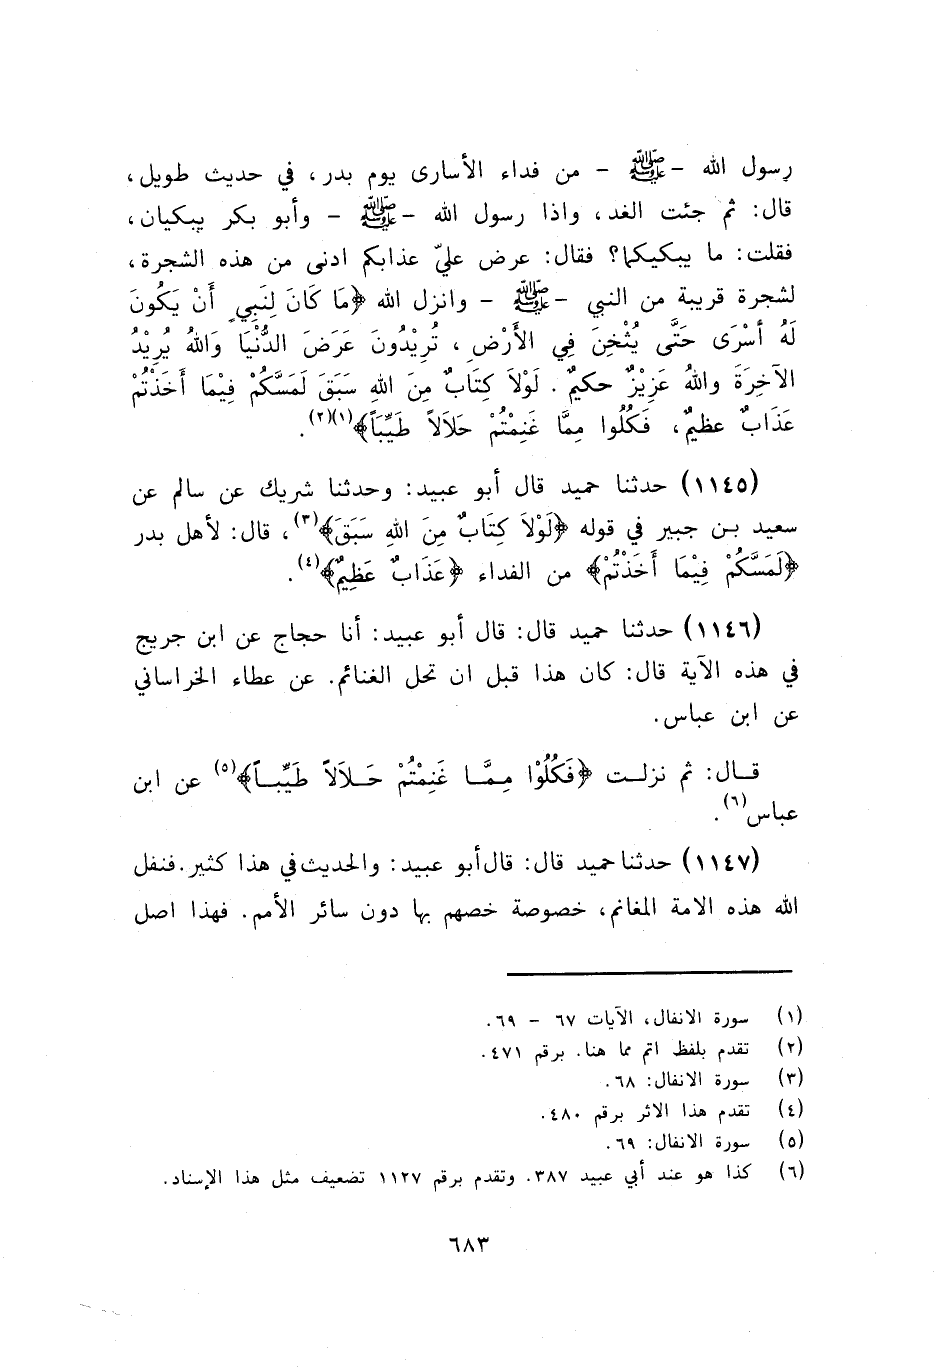 رسول الله - ﷺ - من فداء الأسارى يوم بدر، في حديث طويل،
قال: ثم جئت الغد، واذا رسول الله - ﷺ - وأبو بكر يبكيان،
فقلت: ما يبكيكما؟ فقال: عرض عليّ عذابكم ادنى من هذه الشجرة،
لشجرة قريبة من النبي - ﷺ - وانزل الله ﴿مَا كَانَ لِنَبِيٍ أَنْ يَكُونَ
لَهُ أسْرَى حَتَّى يُثْخِنَ فِي الأَرْضِ، تُرِيْدُونَ عَرَضَ الدُّنْيَا وَاللهُ يُرِيْدُ
الآخِرَةَ واللهُ عَزِيْزٌ حكيمٌ. لَوْلاَ كِتَابٌ مِنَ اللهِ سَبَقَ لَمَسَّكُمْ فِيْمَا أَخَذْتُمْ
عَذَابٌ عظيمٌ، فَكُلُوا مِمَّا غَنِمْتُمْ حَلاَلاً طَيِّبَاً﴾(١)(٢).
(١١٤٥) حدثنا حميد قال أبو عبيد: وحدثنا شريك عن سالم عن
سعيد بن جبير في قوله ﴿لَوْلاَ كِتَابٌ مِنَ اللهِ سَبَقَ﴾(٣)، قال: لأهل بدر
﴿لَمَسَّكُمْ فِيْمَا أَخَذْتُمْ﴾ من الفداء ﴿عَذَابٌ عَظِيمٌ﴾(٤).
(١١٤٦) حدثنا حميد قال: قال أبو عبيد: أنا حجاج عن ابن جريج
في هذه الآية قال: كان هذا قبل ان تحل الغنائم. عن عطاء الخراساني
عن ابن عباس.
قال: ثم نزلت ﴿فَكُلُوْا مِمَّا غَنِمْتُمْ حَلاَلاً طَيِّباً﴾(٥) عن ابن
عباس(٦).
(١١٤٧) حدثنا حميد قال: قال أبو عبيد: والحديث في هذا كثير. فنفل
الله هذه الامة المغانم، خصوصة خصهم بها دون سائر الأمم. فهذا اصل
(١) سورة الانفال، الآيات ٦٧ - ٦٩.
(٢) تقدم بلفظ اتم مما هنا. برقم ٤٧١.
(٣) سورة الانفال: ٦٨.
(٤) تقدم هذا الاثر برقم ٤٨٠.
(٥) سورة الانفال: ٦٩.
(٦) كذا هو عند أبي عبيد ٣٨٧. وتقدم برقم ١١٢٧ تضعيف مثل هذا الإسناد.
٦٨٣